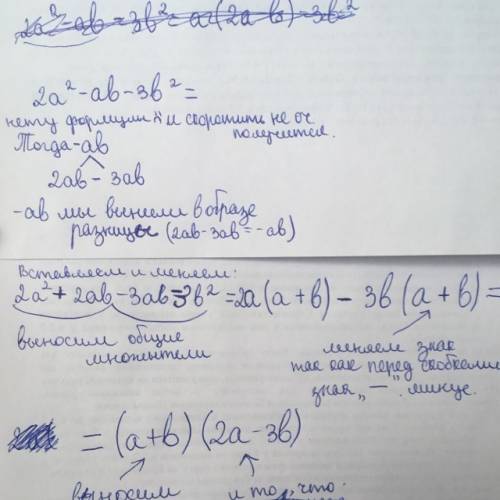 2a² - ab - 3b² = a(2a - b) - 3b²
2a² - ab - 3b² =
нету формули и скоротить не
получиется.
Тогда -ab
2ab - 3ab
-ab мы вынели в образе
разницы (2ab - 3ab = -ab)
Вставляем и меняем:
2a² + 2ab - 3ab - 3b² = 2a(a + b) - 3b(a + b) =
выносим общие
множители
меняем знак
так как перед скобками
знак „—" минус.
= (a+b)(2a-3b)
выносим и то, что